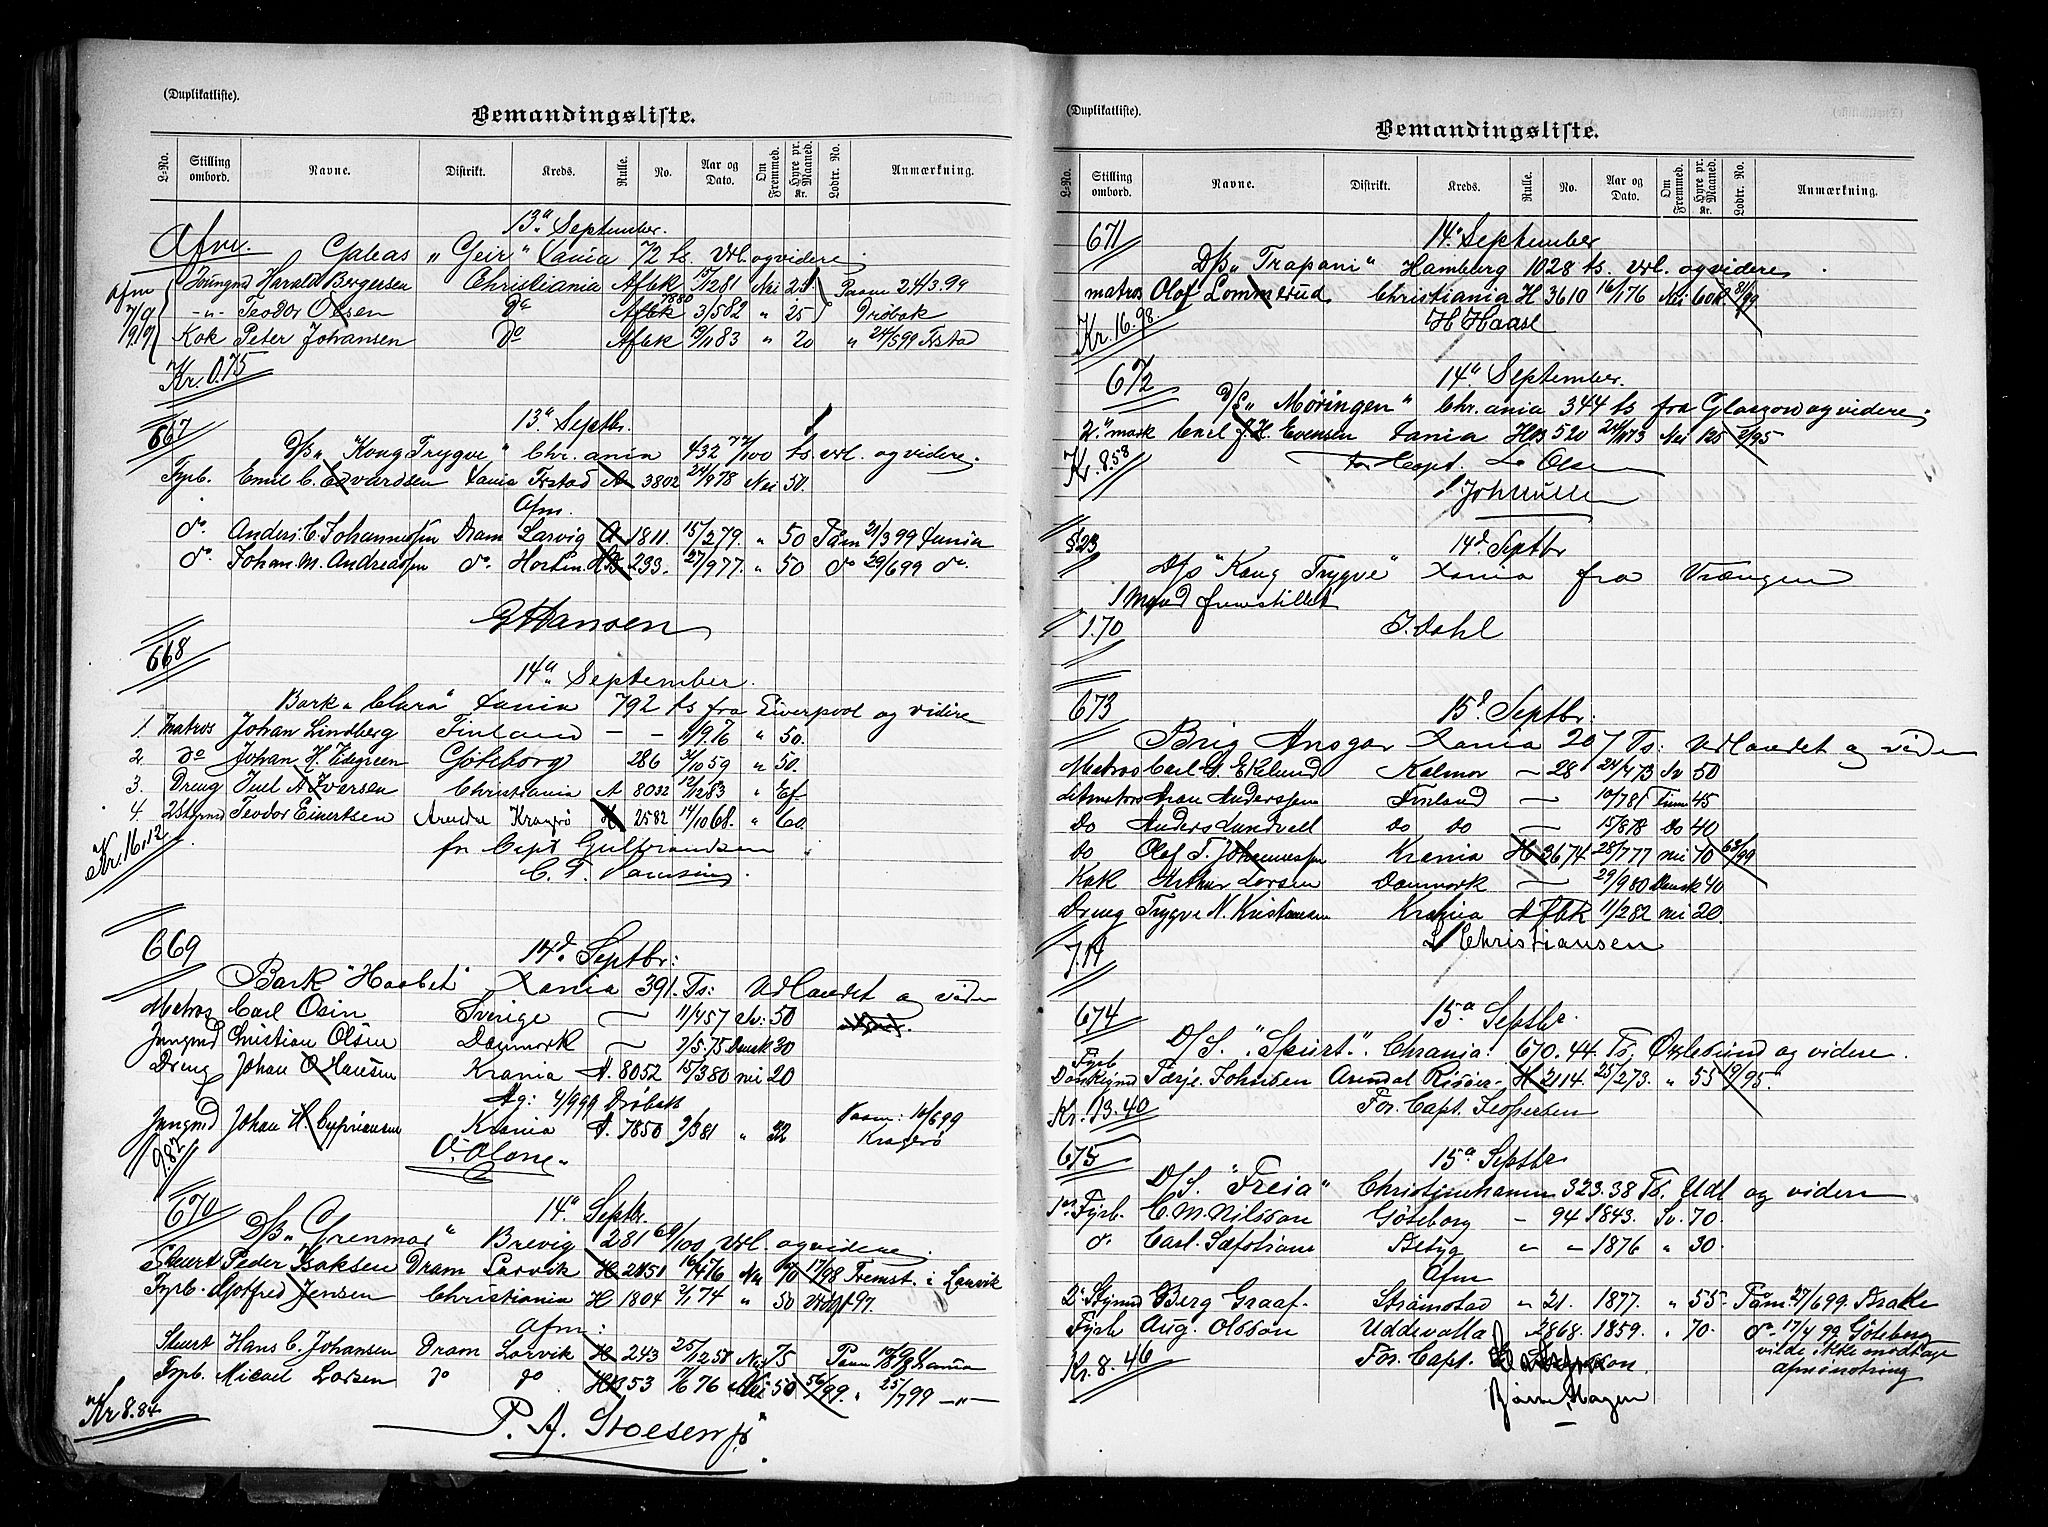 (Duplikatliste).
Bemandingsliste.
L-No. Stilling ombord. Navne. Distrikt. Kreds. Rulle. No. Aar og Dato. Om Fremmed. Hyre pr. Maaned. Kr. Lodtr. No. Anmærkning.
13a September.
Afm. Galeas "Geir" Xania 72 ts. Udl. og videre
Jungmd Harald Bergersen Christiania Afbk 15/1281 Nei 25 Paam 24/3.99
Afm 7/9 -"- Teodor Olsen Do Afbk 1880 3/582 " 25 Drøbak
19/9 Kok Peter Johansen Do Afbk 19/1183 " 20 " 24/599 Fstad
Kr. 0.75
667 13a Septbr.
D/S "Kong Trygve" Chr.ania 432 77/100 ts. Udl. og videre.
Fyrb. Emil C. Edvardsen Xania Fstad A 3802 24/978 Nei 50.
Afm.
do. Anders C. Johannessen Dram Larvig A 1811. 15/279. " 50 Paam 21/399 Xania
do. Johan M. Andreassen do. Horten HB 233. 27/977. " 50 do 29/699 do.
G Hansen
668 14a September.
Bark "Clara" Xania 792 ts fra Liverpool og videre
1. Matros Johan Lindberg Finland - - 11/976 " 50.
2. do Johan H. Edgreen Göteborg 286 31/1059 " 50.
3. Dreng Juel A. Iversen Christiania A 8032 12/1283 " Ef.
4. 2Stymd Teodor Einertsen Arendal Kragerø H 2582 14/1068. " 60.
Kr. 16.12 for Capt Gulbrandsen
669 14d. Septbr:
Bark "Haabet" Xania 391. Ts: Udlandet og vider
Matros Carl Osin Sverige — 11/457 Sv: 50
Jungmd Christian Olsen Danmark — 2/5.75 Dansk 30
Dreng Johan O Hansen Krania A. 8052 15/380 nei 20
Ag: 4/999 Drøbak
Jungmd Johan H. Cypriansen Krania A. 7850 2/381 " 32 Paam: 16/699 Kragerø
9.82 O. Olsen.
670 14a. Septbr.
D/S "Grenmar" Brevig 281 69/100 Udl. og videre.
Stuert Peder Isaksen Dram Larvik H 2151 16/476 Nei 70 17/98 Fremst. i Larvik
Fyrb. Gotfred Jensen Christiania H 1804 2/174 " 50 Udgt 97.
Afm:
Stuert Hans C. Johansen Dram Larvik H 243 25/1258 Nei 75 Paam Xania
Fyrb. Micael Larsen do do HB 53 7/676 Nei 50 56/99. " 25/799 -"-
Kr 8.84
P. A. Stoesen jr
(Duplikatliste).
Bemandingsliste.
L-No. Stilling ombord. Navne. Distrikt. Kreds. Rulle. No. Aar og Dato. Om Fremmed. Hyre pr. Maaned. Kr. Lodtr. No. Anmærkning.
671 14. September
D/S "Trapani" Hamburg 1028 ts. Udl. og videre.
matros Olof Lommerud Christiania H 3610 16/176 Nei 60 R 81/99
Kr. 16.98. H Haase
672 14a September.
D/S "Møringen" Chr.ania 344 ts fra Glasgow og videre.
2. mask Emil J. H. Evensen Xania HB 520 24/173 Nei 125 2/95
Kr. 8.58 for Capt. L. Olsen
Joh Müller
§23 14d. Septbr
D/S "Kong Trygve" Xania fra Vrængen
1 Mand fremstillet
1.70 I. Dahl
673 15d Septbr:
Brig Ansgar Xania 207 Ts: Udlandet og vider
Matros Carl G. Eklund Kalmar — 28 24/473 Sv 50
Letmatros Aran Anderssen Finland — 10/781 Finn 45
do Anders Lundvell do do — 15/878 do 40
do Olof T. Johannessen Krania H 3674 28/777 nei 70 63/99
Kok Arthur Larsen Danmark — 29/980 Dansk 40
Dreng Trygve N. Kristiansen Krania Afbk 11/282 nei 20.
7.14 L Christiansen
674 15a Septbr.
D/S. "Skurt". Chrania. 670.44. Ts. Oxlesund og videre.
Fyrb
Donkeymd Tarje Johnsen Arendal Risør H 2114. 25/273. " 55 19/95.
Kr. 13.40 For. Capt. Jespersen
675 15a Septbr
D/S. "Freia" Christinehamn 323.38 Ts. Udl og videre
1ste Fyrb. C. M. Nilsson Göteborg - 94 1843. Sv. 70.
do. Carl. Sæfstrøm Betyg " " 1876 " 30.
Afm
2. Stymd Berg Graaf. Strømstad " 21. 1877. " 55. Paam. 27/699. Brake
Fyrb Aug. Olsson Uddevalla 2868. 1859. " 70. do. 17/4 99 Göteborg
Kr. 8.46 For. Capt. vilde ikke modtage afmønstring
Hagen